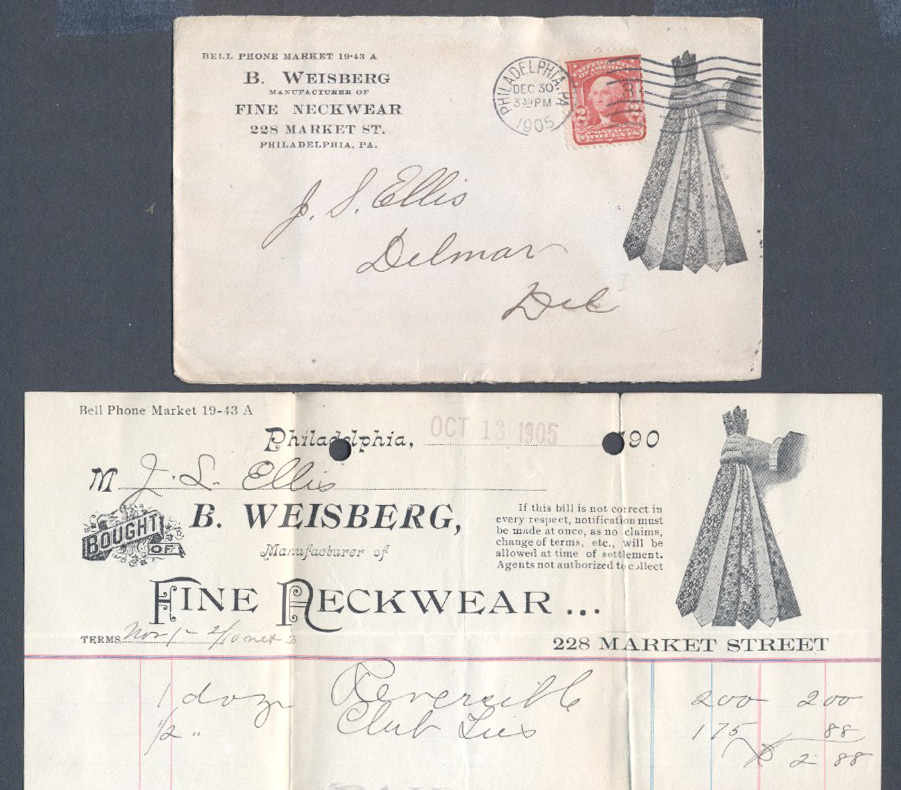 BELL PHONE MARKET 19-43 A
B. WEISBERG
MANUFACTURER OF
FINE NECKWEAR
228 MARKET ST.
PHILADELPHIA, PA.
PHILADELPHIA, PA.
DEC 30
3 30 PM
1905
2 2
TWO CENTS
J. S. Ellis
Delmar
Del
Bell Phone Market 19-43 A
Philadelphia, OCT 13 1905 190
M J. S. Ellis
BOUGHT OF
B. WEISBERG,
Manufacturer of
FINE NECKWEAR...
If this bill is not correct in
every respect, notification must
be made at once, as no claims,
change of terms, etc., will be
allowed at time of settlement.
Agents not authorized to collect
TERMS Nov 1 - 2/10 net 3
228 MARKET STREET
1 doz Reversible 200 200
1/2 " Club Ties 175 88
2 88